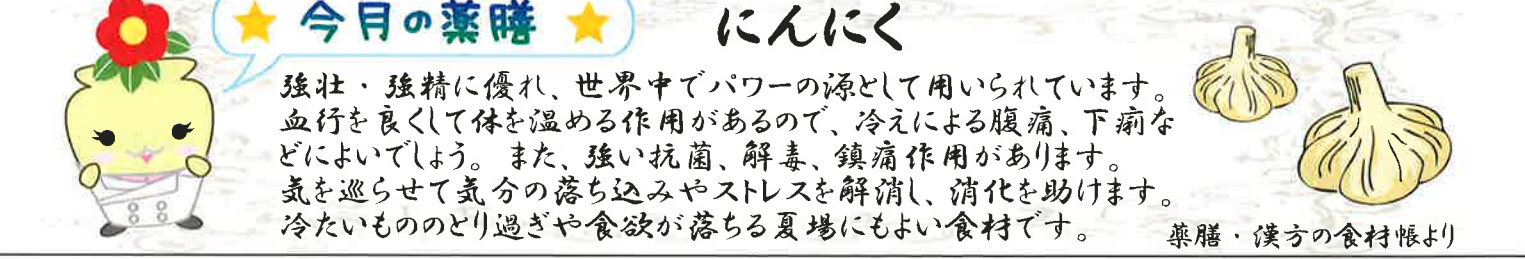 ★ 今月の薬膳 ★
にんにく
強壮・強精に優れ、世界中でパワーの源として用いられています。
血行を良くして体を温める作用があるので、冷えによる腹痛、下痢な
どによいでしょう。また、強い抗菌、解毒、鎮痛作用があります。
気を巡らせて気分の落ち込みやストレスを解消し、消化を助けます。
冷たいもののとり過ぎや食欲が落ちる夏場にもよい食材です。
薬膳・漢方の食材帳より